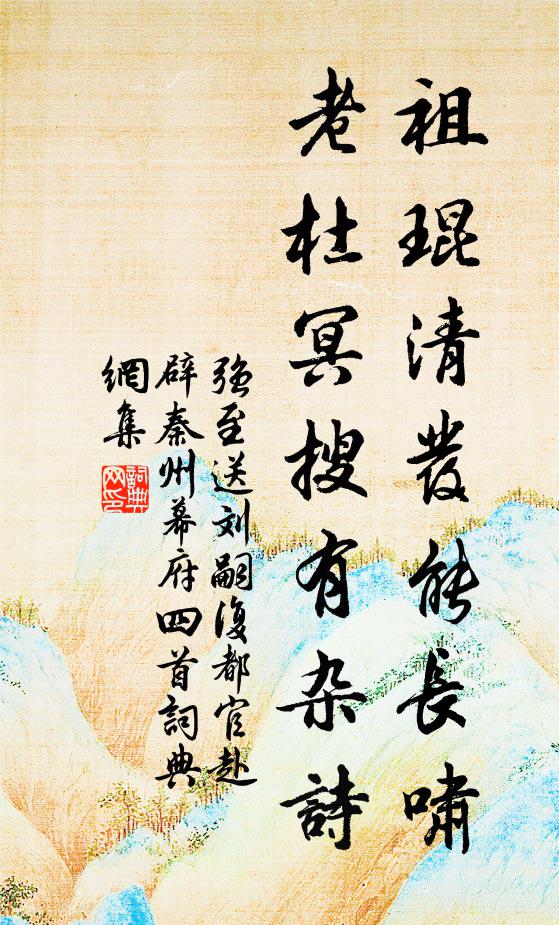 祖琨清發能長嘯
老杜冥搜有杂詩
强至送刘嗣復都官赴
辟秦州幕府四首詞典
網集
詞典
网印